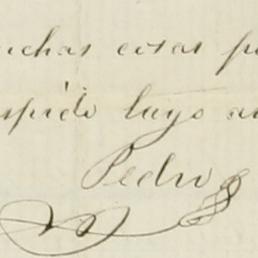 uchas cosas p
spido tuyo a
Pedro